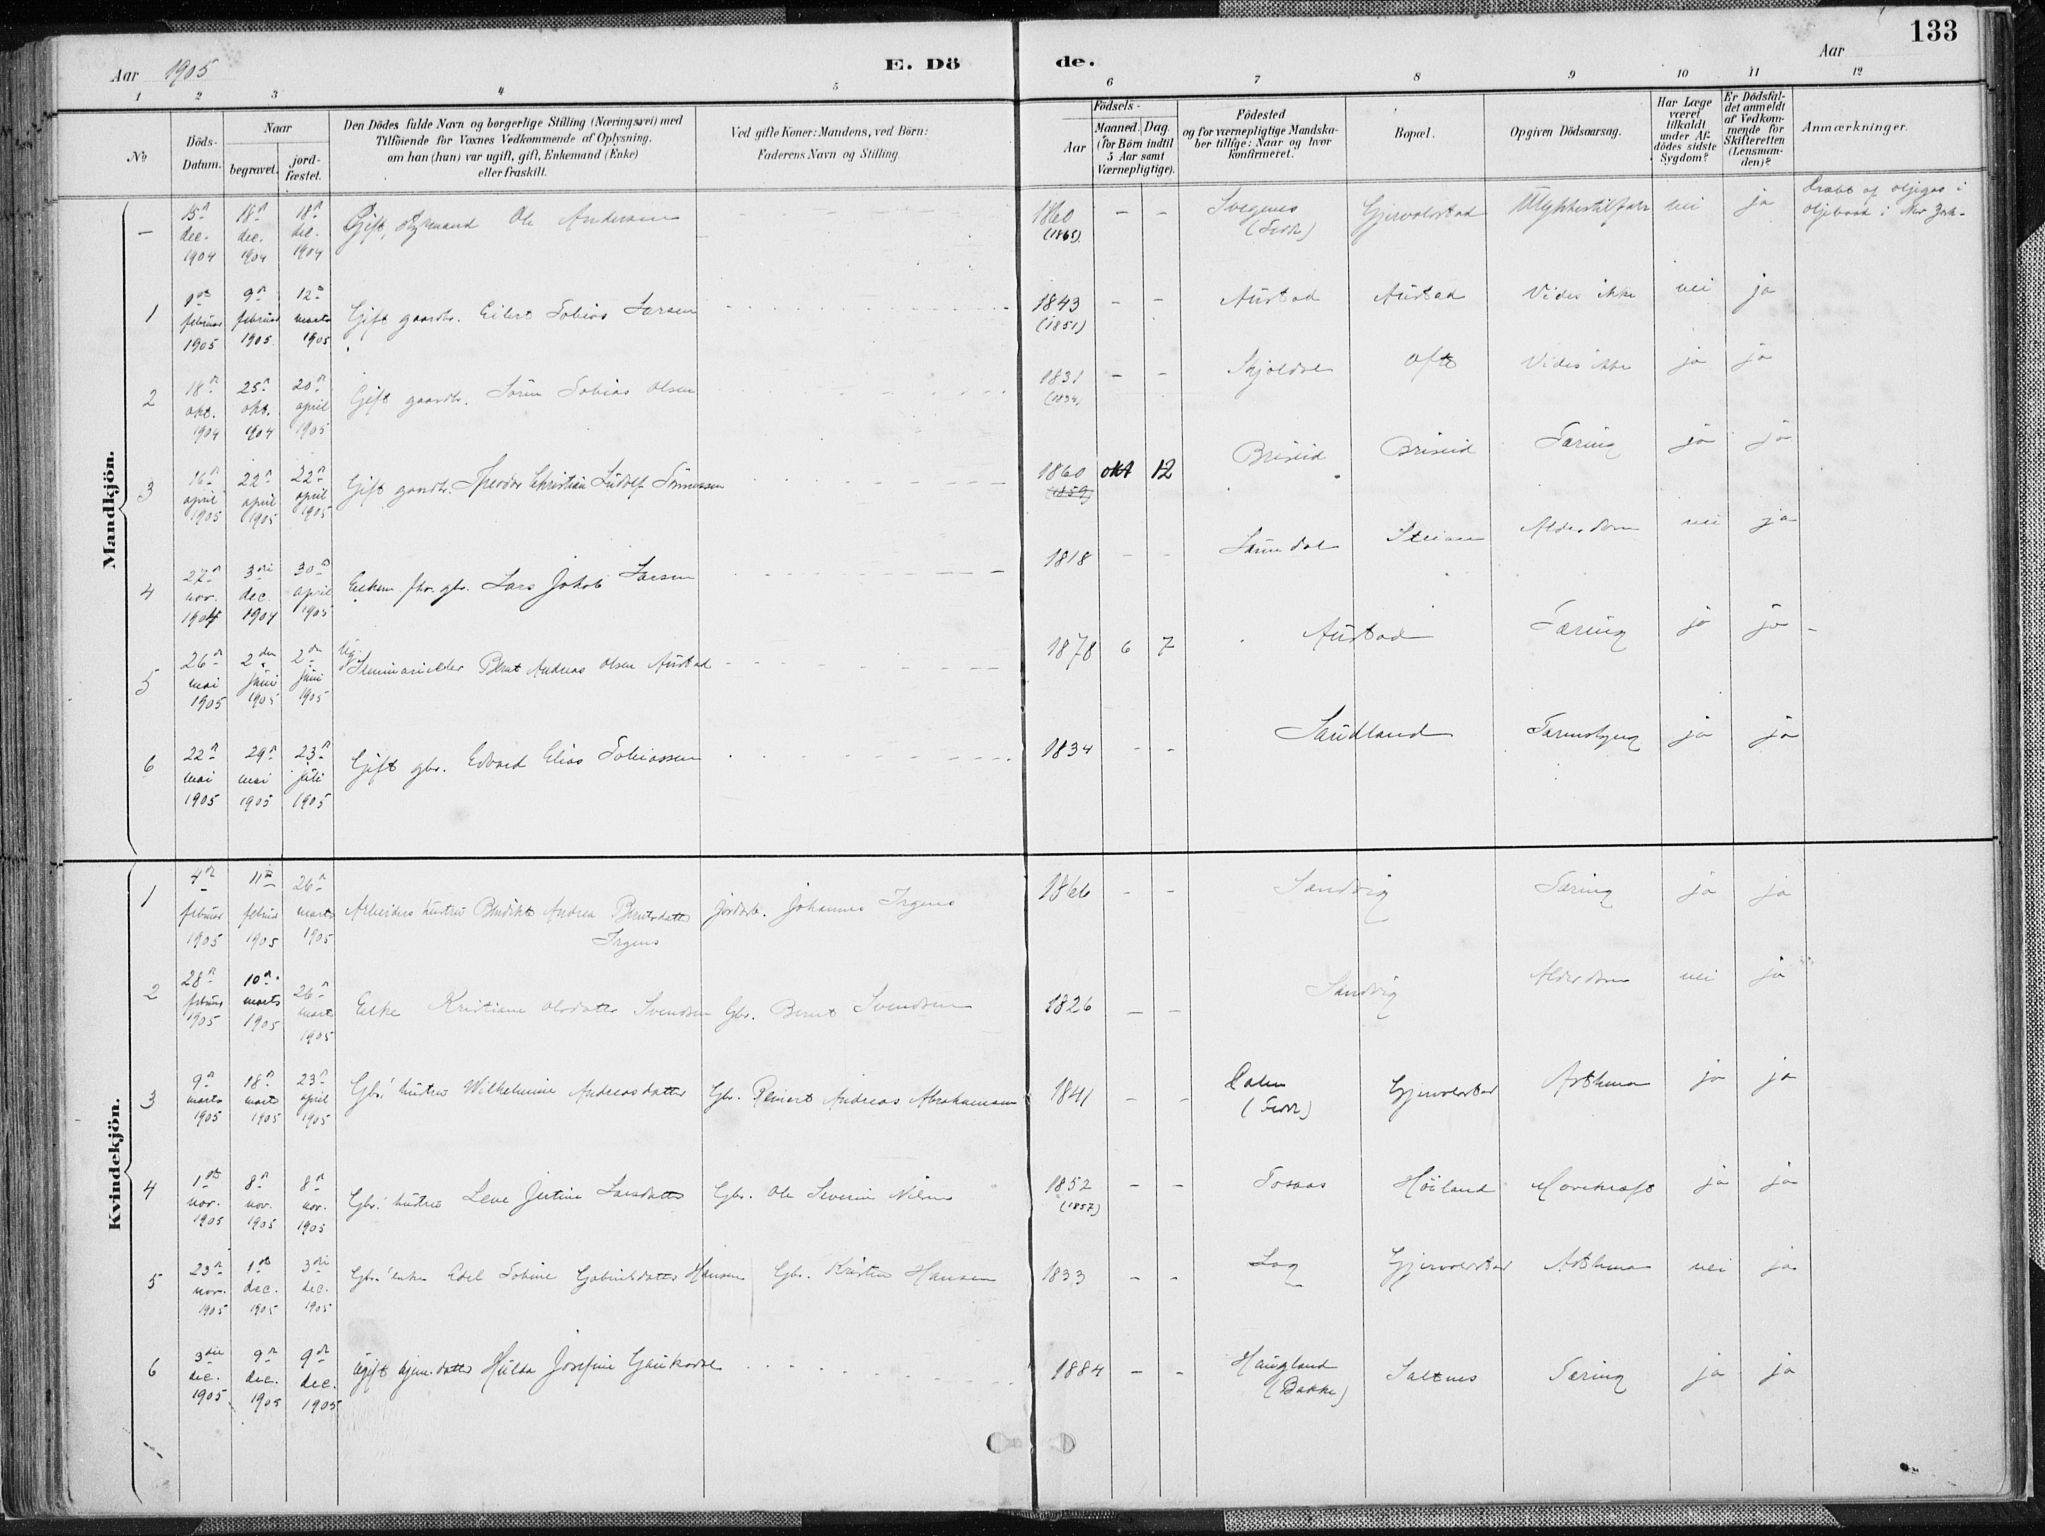 133
Aar 1905
E. Dö
de.
Aar
1 2 3 4 5 6 7 8 9 10 11 12
No
Döds-
Datum.
Naar
begravet.
jord-
fæstet.
Den Dödes fulde Navn og borgerlige Stilling (Næringsvei) med
Tilföiende for Voxnes Vedkommende af Oplysning,
om han (hun) var ugift, gift, Enkemand (Enke)
eller fraskilt.
Ved gifte Koner: Mandens, ved Börn:
Faderens Navn og Stilling.
Födsels-
Aar
Maaned. Dag.
(for Börn indtil
5 Aar samt
Værnepligtige).
Födested
og for værnepligtige Mandska-
ber tillige: Naar og hvor
konfirmeret.
Bopæl.
Opgiven Dödsaarsag.
Har Læge
været
tilkaldt
under Af-
dödes sidste
Sygdom?
Er Dödsfal-
det anmeldt
af Vedkom-
mende for
Skifteretten
(Lensman-
den)?
Anmærkninger.
Mandkjön.
– 15de dec. 1904 18de dec. 1904 18de dec. 1904 Gift Ole Andersen 1860 (1865) – – Gjervoldstad Ulykkestilfælde nei ja Dræbt af oljegas i
oljebaad i New York.
1 februar 1905 9de februar 1905 12te marts 1905 Gift gaardbr. Eilert Tobias Larsen 1843 (1851) – – Austad Austad Vides ikke nei ja
2 18de okt. 1904 25de okt. 1904 20de april 1905 Gift gaardbr. Sören Tobias Olsen 1831 (1834) – – Ofte Vides ikke ja ja
3 16de april 1905 22de april 1905 22de april 1905 Gift gaardbr. Theodor Christian Ludolf 1860 (1859) okt 12 Briseid Briseid Tæring ja ja
4 27de nov. 1904 3die dec. 1904 30de april 1905 Enkem. fhv. gbr. Lars Jakob Larsen 1818 – – Alderdom nei ja
5 26de mai 1905 2den juni 1905 2den juni 1905 Ug. Seminarielev Bernt Andreas Olsen Austad 1878 6 7 Austad Tæring ja ja
6 22de mai 1905 29de mai 1905 23de juli 1905 Gift gbr. Edvard Elias Tobiassen 1834 – – Sandland Tarmslyng ja ja
Kvindekjön.
1 4de februar 1905 11te februar 1905 26de marts 1905 Arbeiders hustru Andrea Berntsdatter
Irgens Johannes Irgens 1866 – – Sandvig Tæring ja ja
2 28de februar 1905 10de marts 1905 26de marts 1905 Enke Kristiane Olsdatter Svendsen Gbr. Bernt Svendsen 1826 – – Sandvig Alderdom nei ja
3 9de marts 1905 18de marts 1905 23de april 1905 Gbr.' hustru Wilhelmine Andreasdatter Gbr. Reinert Andreas Abrahamsen 1841 – – Gjervoldstad Asthma ja ja
4 1ste nov. 1905 8de nov. 1905 8de nov. 1905 Gbr.' hustru Lene Jertine Larsdatter Gbr. Ole Severin Nilsen 1852 (1857) – – Tosaas Höiland Mavekræft ja ja
5 23de nov. 1905 1ste dec. 1905 3die dec. 1905 Gbr.' enke Edel Tobine Gabrielsdatter Hansen Gbr. Hansen 1833 – – Log Gjervoldstad Asthma nei ja
6 3die dec. 1905 9de dec. 1905 9de dec. 1905 Ugift Hulda Josefine 1884 – – Haugland
(Bakke) Saltnes Tæring ja ja